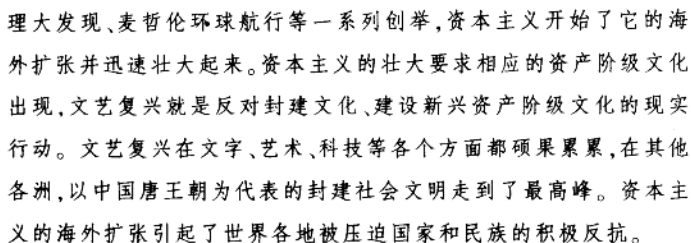 理大发现、麦哲伦环球航行等一系列创举,资本主义开始了它的海
外扩张并迅速壮大起来。资本主义的壮大要求相应的资产阶级文化
出现,文艺复兴就是反对封建文化、建设新兴资产阶级文化的现实
行动。文艺复兴在文字、艺术、科技等各个方面都硕果累累,在其他
各洲,以中国唐王朝为代表的封建社会文明走到了最高峰。资本主
义的海外扩张引起了世界各地被压迫国家和民族的积极反抗。